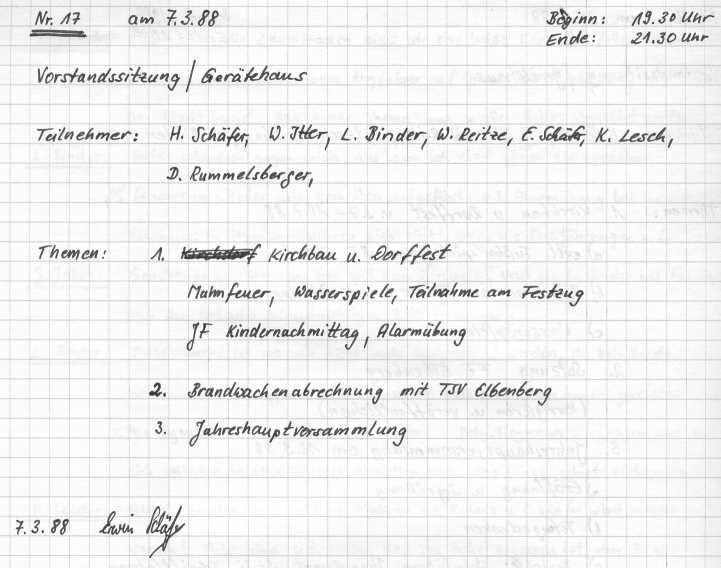 Nr. 17 am 7.3.88 Beginn: 19.30 Uhr
Ende: 21.30 Uhr
Vorstandssitzung / Gerätehaus
Teilnehmer: H. Schäfer, W. Itter, L. Binder, W. Reitze, E. Schäfer, K. Lesch,
D. Rummelsberger,
Themen: 1. Kirchdorf Kirchbau u. Dorffest
Mahnfeuer, Wasserspiele, Teilnahme am Festzug
JF Kindernachmittag, Alarmübung
2. Brandwachenabrechnung mit TSV Elbenberg
3. Jahreshauptversammlung
7.3.88 Erwin Schäfer